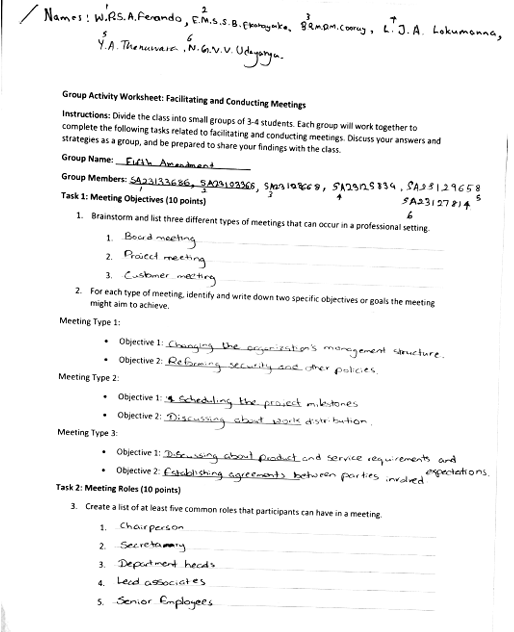 Names: W.P.S.A. Ferando, E.M.S.S.B. Ekanayake, B.R.M.D.M. Cooray, L.J.A. Lokumanna,
1 2 3 4
Y.A. Thenuwara, N.G.V.V. Udayanga.
5 6
Group Activity Worksheet: Facilitating and Conducting Meetings
Instructions: Divide the class into small groups of 3-4 students. Each group will work together to
complete the following tasks related to facilitating and conducting meetings. Discuss your answers and
strategies as a group, and be prepared to share your findings with the class.
Group Name: Fifth Amendment
Group Members: SA23133686, SA23103366, SA23125834, SA23129658
1 2 3 4 5
SA23127814
6
Task 1: Meeting Objectives (10 points)
1. Brainstorm and list three different types of meetings that can occur in a professional setting.
1. Board meeting
2. Project meeting
3. Customer meeting
2. For each type of meeting, identify and write down two specific objectives or goals the meeting
might aim to achieve.
Meeting Type 1:
• Objective 1: Changing the organization's management structure.
• Objective 2: Reforming security and other policies.
Meeting Type 2:
• Objective 1: Scheduling the project milestones
• Objective 2: Discussing about work distribution.
Meeting Type 3:
• Objective 1: Discussing about product and service requirements and
expectations.
• Objective 2: Establishing agreements between parties involved
Task 2: Meeting Roles (10 points)
3. Create a list of at least five common roles that participants can have in a meeting.
1. Chairperson
2. Secretary
3. Department heads
4. Lead associates
5. Senior Employees